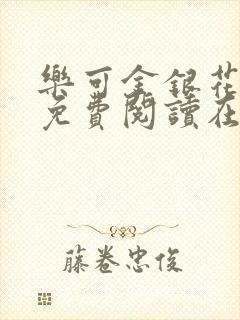 樂可金銀花
免費閱讀在
藤卷忠俊